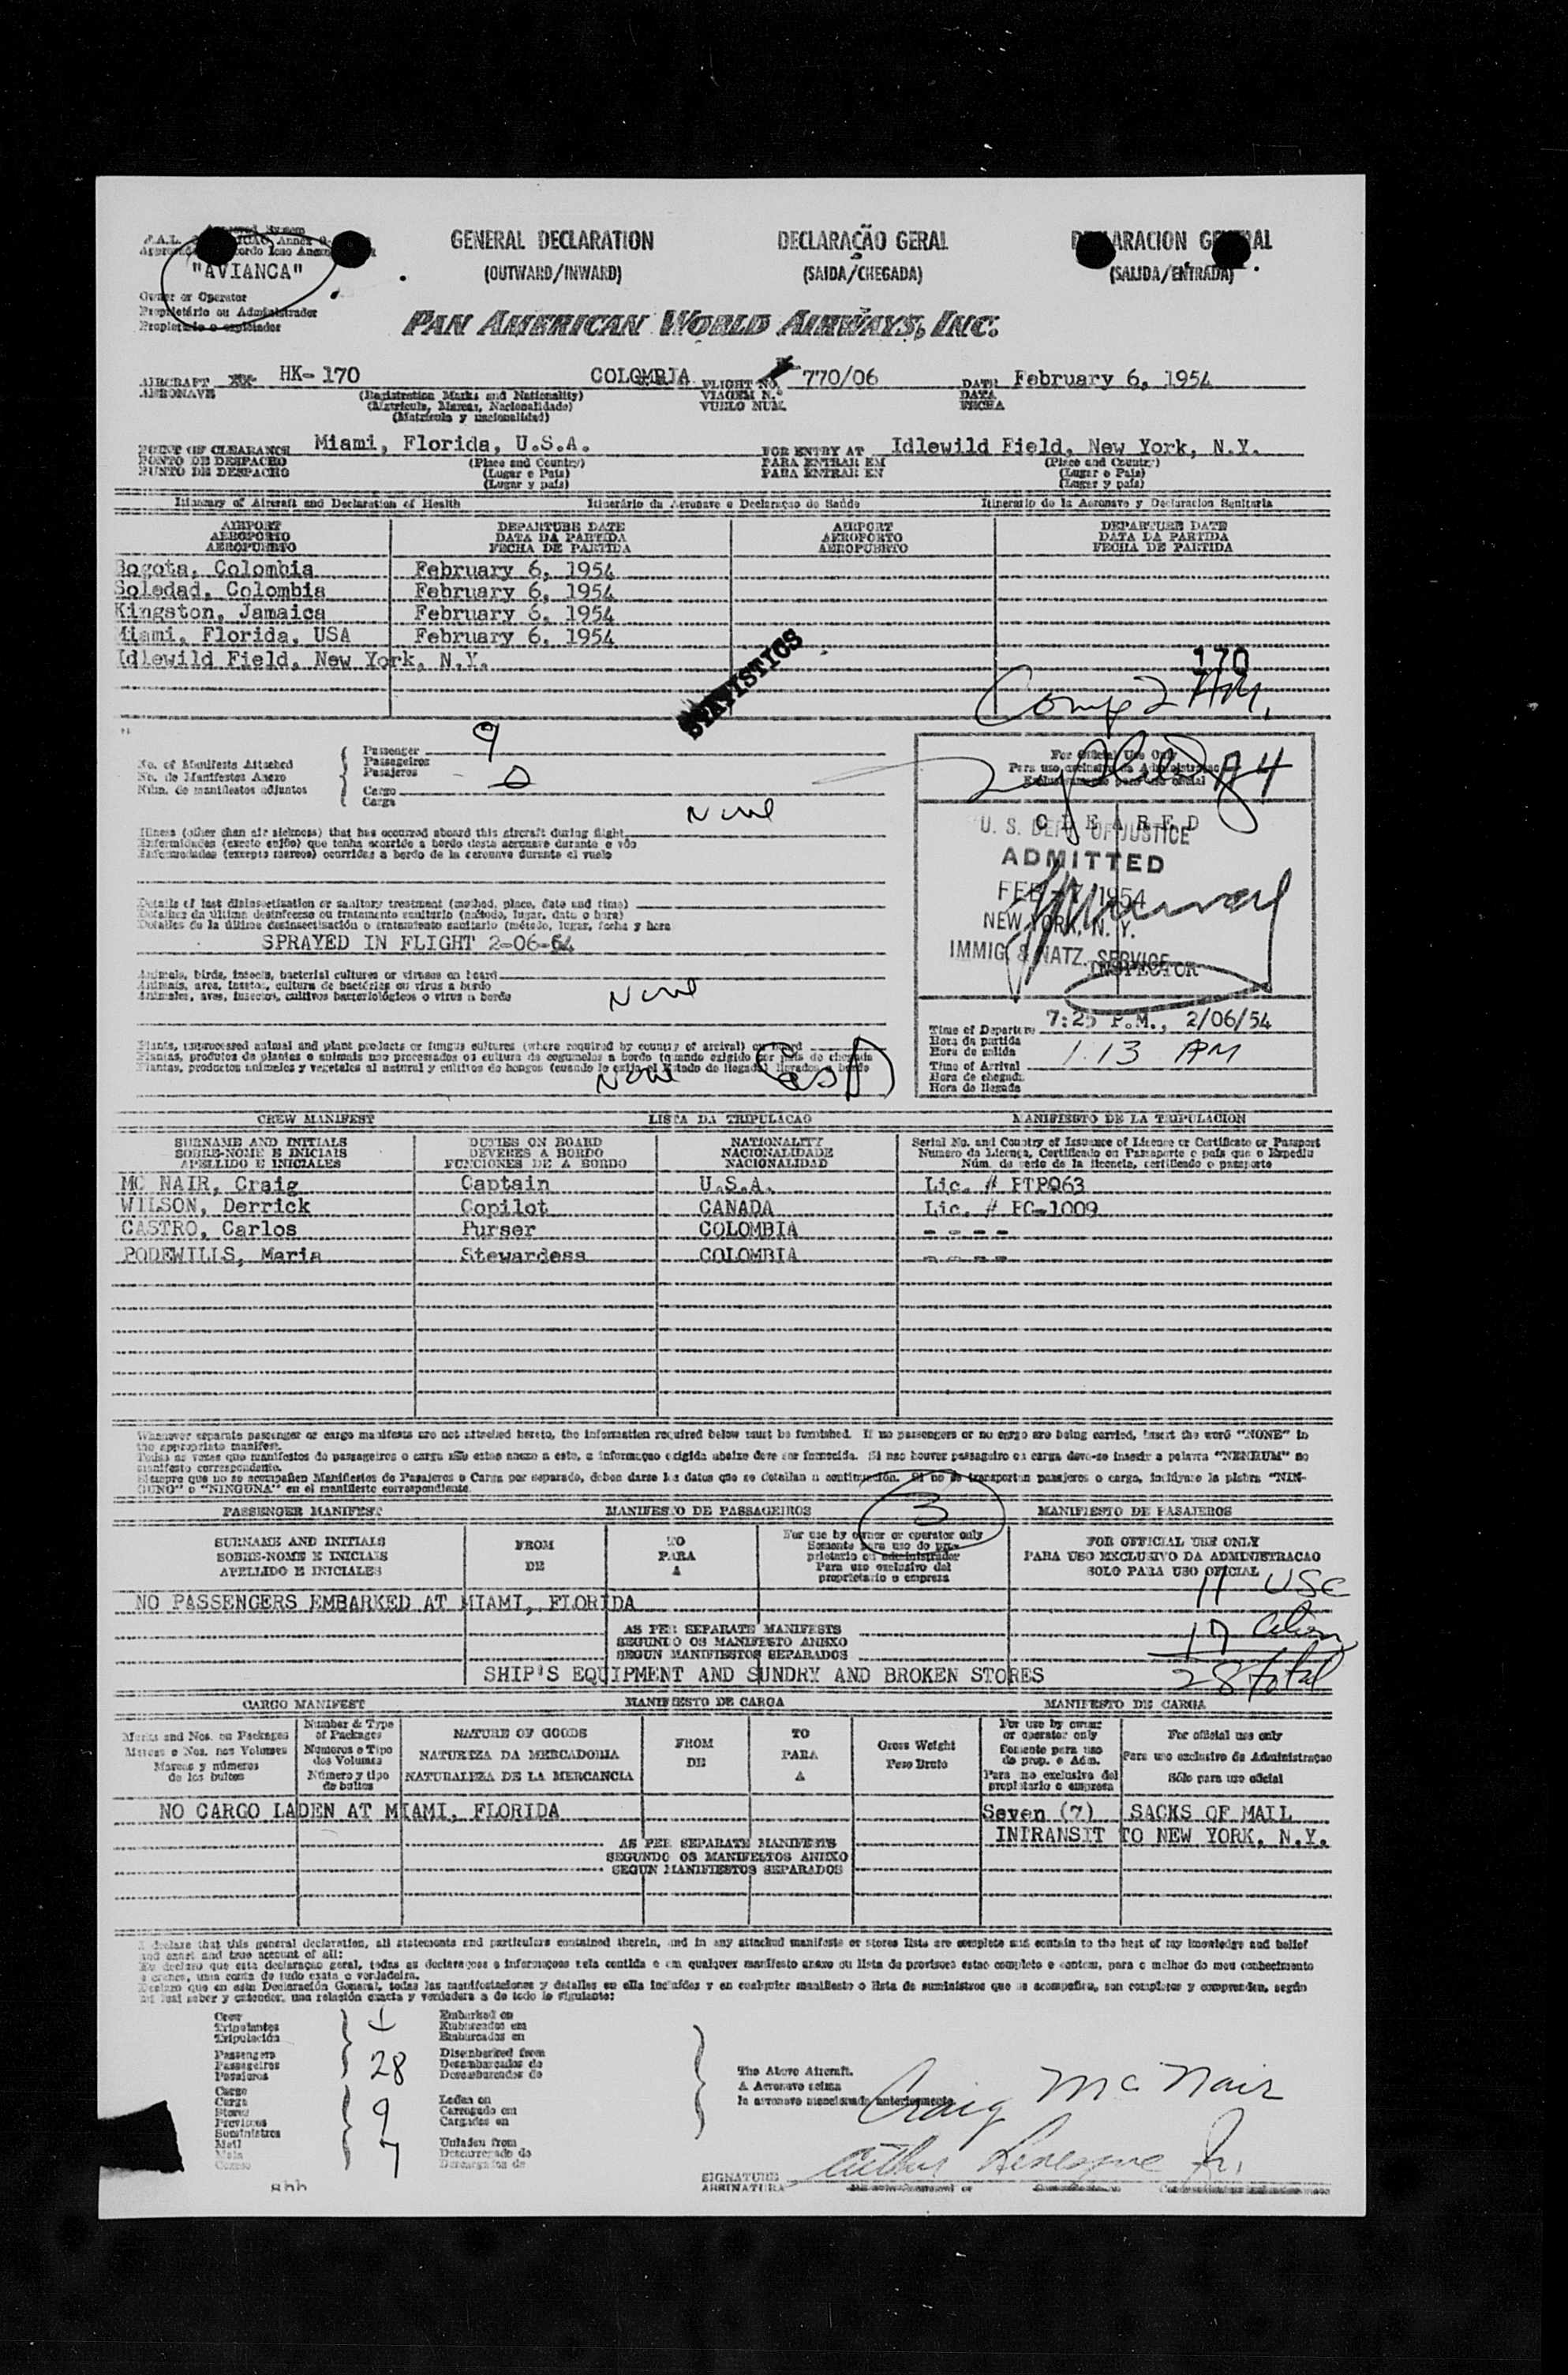 GENERAL DECLARATION
(OUTWARD/INWARD)
DECLARAÇÃO GERAL
(SAIDA/CHEGADA)
(SALIDA/ENTRADA)
"AVIANCA"
Owner or Operator
Proprietário ou Administrador
Propietario o explotador
PAN AMERICAN WORLD AIRWAYS, INC.
AIRCRAFT HK-170 COLOMBIA FLIGHT NO. 770/06 DATE February 6, 1954
AERONAVE (Registration Marks and Nationality) VIAGEM N.º DATA
(Matricula, Marcas, Nacionalidade) VUELO NUM. FECHA
(Matricula y nacionalidad)
POINT OF CLEARANCE Miami, Florida, U.S.A. FOR ENTRY AT Idlewild Field, New York, N.Y.
PONTO DE DESPACHO (Place and Country) PARA ENTRAR EM (Place and Country)
PUNTO DE DESPACHO (Lugar e País) PARA ENTRAR EN (Lugar e País)
(Lugar y país) (Lugar y país)
Itinerary of Aircraft and Declaration of Health Itinerário da Aeronave e Declaraçao de Saúde Itinerario de la Aeronave y Declaracion Sanitaria
AIRPORT DEPARTURE DATE AIRPORT DEPARTURE DATE
AEROPORTO DATA DA PARTIDA AEROPORTO DATA DA PARTIDA
AEROPUERTO FECHA DE PARTIDA AEROPUERTO FECHA DE PARTIDA
Bogota, Colombia February 6, 1954
Soledad, Colombia February 6, 1954
Kingston, Jamaica February 6, 1954
Miami, Florida, USA February 6, 1954
Idlewild Field, New York, N.Y.
170
STATISTICS
No. of Manifests Attached
No. de Manifestos Anexo
Núm. de manifiestos adjuntos
Passenger 9
Passageiros
Pasajeros
Cargo 0
Carga
For Official Use Only
Illness (other than air sickness) that has occurred aboard this aircraft during flight None
Enfermidades (exceto enjôo) que tenha ocorrido a bordo desta aeronave durante o vôo
Enfermedades (excepto mareos) ocurridas a bordo de la aeronave durante el vuelo
CLEARED
U. S. DEPT. OF JUSTICE
ADMITTED
FEB -7 1954
NEW YORK, N. Y.
IMMIG. & NATZ. SERVICE
INSPECTOR
Details of last disinsectization or sanitary treatment (method, place, date and time)
Detalhes da última desinfeccao ou tratamento sanitario (método, lugar, data e hora)
Detalles de la última desinsectización o tratamiento sanitario (método, lugar, fecha y hora
SPRAYED IN FLIGHT 2-06-54
Animals, birds, insects, bacterial cultures or viruses on board None
Animais, aves, insetos, cultura de bactérias ou virus a bordo
Animales, aves, insectos, cultivos bacteriológicos o virus a bordo
Plants, unprocessed animal and plant products or fungus cultures (where required by country of arrival) on board
Plantas, produtos de plantas e animais nao processados ou cultura de cogumelos a bordo (quando exigido por país de chegada
Plantas, productos animales y vegetales al natural y cultivos de hongos (cuando lo exija el Estado de llegada) llevados a bordo
None
Time of Departure 7:25 P.M., 2/06/54
Hora da partida
Hora de salida 1:13 AM
Time of Arrival
Hora de chegada
Hora de llegada
CREW MANIFEST LISTA DA TRIPULACAO MANIFIESTO DE LA TRIPULACION
SURNAME AND INITIALS DUTIES ON BOARD NATIONALITY Serial No. and Country of Issuance of License or Certificate or Passport
SOBRE-NOME E INICIAIS DEVERES A BORDO NACIONALIDADE Numero da Licença, Certificado ou Passaporte e país que o Expediu
APELLIDO E INICIALES FUNCIONES DE A BORDO NACIONALIDAD Núm. de serie de la licencia, certificado o pasaporte
MC NAIR, Craig Captain U.S.A. Lic. # PTP063
WILSON, Derrick Copilot CANADA Lic. # PC-1009
CASTRO, Carlos Purser COLOMBIA - - - -
PODEWILLS, Maria Stewardess COLOMBIA - - - -
Whenever separate passenger or cargo manifests are not attached hereto, the information required below must be furnished. If no passengers or no cargo are being carried, insert the word "NONE" in
the appropriate manifest.
Todas as vezes que manifestos de passageiros o carga não estao anexo a este, a informaçao exigida abaixo deve ser fornecida. Si nao houver passageiro ou carga deve-se inserir a palavra "NENHUM" no
manifesto correspondente.
Siempre que no se acompañen Manifiestos de Pasajeros o Carga por separado, deben darse los datos que se detallan a continuación. Si no se transportan pasajeros o cargo, inclúyase la plabra "NIN-
GUNO" o "NINGUNA" en el manifiesto correspondiente.
3
PASSENGER MANIFEST MANIFESTO DE PASSAGEIROS MANIFIESTO DE PASAJEROS
SURNAME AND INITIALS FROM TO For use by owner or operator only FOR OFFICIAL USE ONLY
SOBRE-NOME E INICIAIS DE PARA Somente para uso do pro- PARA USO EXCLUSIVO DA ADMINISTRACAO
APELLIDO E INICIALES A prietario ou administrador SOLO PARA USO OFICIAL
Para uso exclusivo del
propietario o empresa
11 USC
NO PASSENGERS EMBARKED AT MIAMI, FLORIDA
AS PER SEPARATE MANIFESTS 17 alien
SEGUNDO OS MANIFESTO ANEXO
SEGUN MANIFIESTOS SEPARADOS
SHIP'S EQUIPMENT AND SUNDRY AND BROKEN STORES 28 total
CARGO MANIFEST MANIFIESTO DE CARGA MANIFESTO DE CARGA
Marks and Nos. on Packages Number & Type of Packages NATURE OF GOODS FROM TO Gross Weight For use by owner or operator only For official use only
Marcas e Nos. nos Volumes Numeros e Tipo dos Volumes NATUREZA DA MERCADORIA DE PARA Peso Bruto Somente para uso do prop. e Adm. Para uso exclusivo de Administraçao
Marcas y números de los bultos Número y tipo de bultos NATURALEZA DE LA MERCANCIA A Para uso exclusivo del propietario o empresa Sólo para uso oficial
NO CARGO LADEN AT MIAMI, FLORIDA Seven (7) SACKS OF MAIL
INTRANSIT TO NEW YORK, N.Y.
AS PER SEPARATE MANIFESTS
SEGUNDO OS MANIFESTOS ANEXO
SEGUN MANIFIESTOS SEPARADOS
I declare that this general declaration, all statements and particulars contained therein, and in any attached manifests or stores lists are complete and contain to the best of my knowledge and belief
and exact and true account of all:
Crew
Tripulantes
Tripulación
Embarked on
Embarcados em
Embarcados en
Passengers
Passageiros
Pasajeros
28
Disembarked from
Desembarcados de
Desembarcados de
Cargo
Carga
Stores
Suministros
9
Laden on
Carregado em
Cargados en
Mail
7
Unladen from
Descarregado de
Descargados de
The Above Aircraft.
A Aeronave acima
la aeronave mencionada anteriormente
Craig McNair
SIGNATURE
ASSINATURA